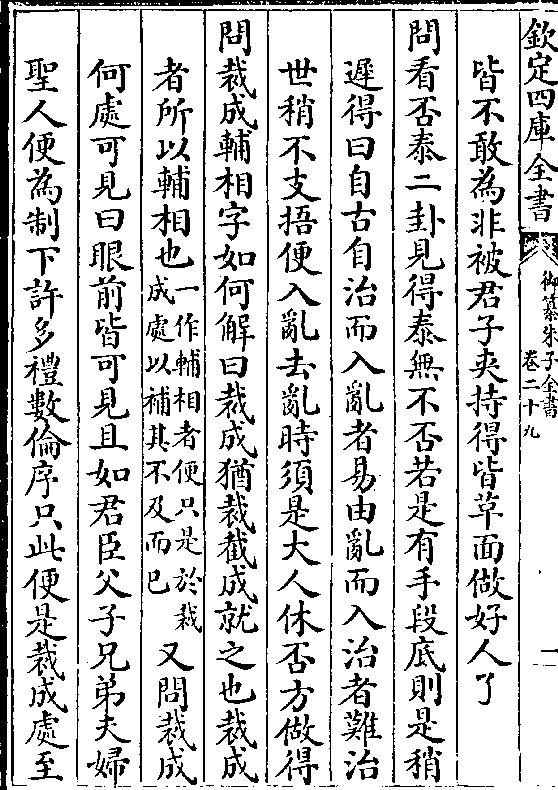 欽定四庫全書
御纂朱子全書
卷二十九
一
皆不敢為非被君子夾持得皆草面做好人了
問看否泰二卦見得泰無不否若是有手段底則是稍
遲得曰自古自治而入亂者易由亂而入治者難治
世稍不支捂便入亂去亂時須是大人休否方做得
問裁成輔相字如何解曰裁成猶裁截成就之也裁成
者所以輔相也一作輔相者便只是於裁
成處以補其不及而已又問裁成
何處可見曰眼前皆可見且如君臣父子兄弟夫婦
聖人便為制下許多禮數倫序只此便是裁成處至